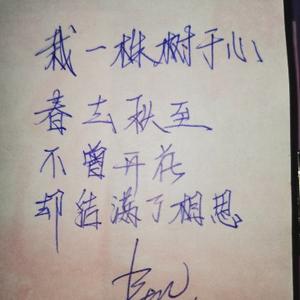 栽一株树于心
春去秋至
不曾开花
却结满了相思